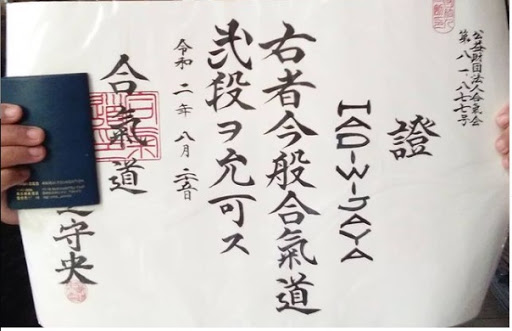 公益財団法人合気会
第八一、八七七号
證
HADI WIJAYA
右者今般合氣道
弐段ヲ允可ス
令和二年八月二五日
合氣道
守央